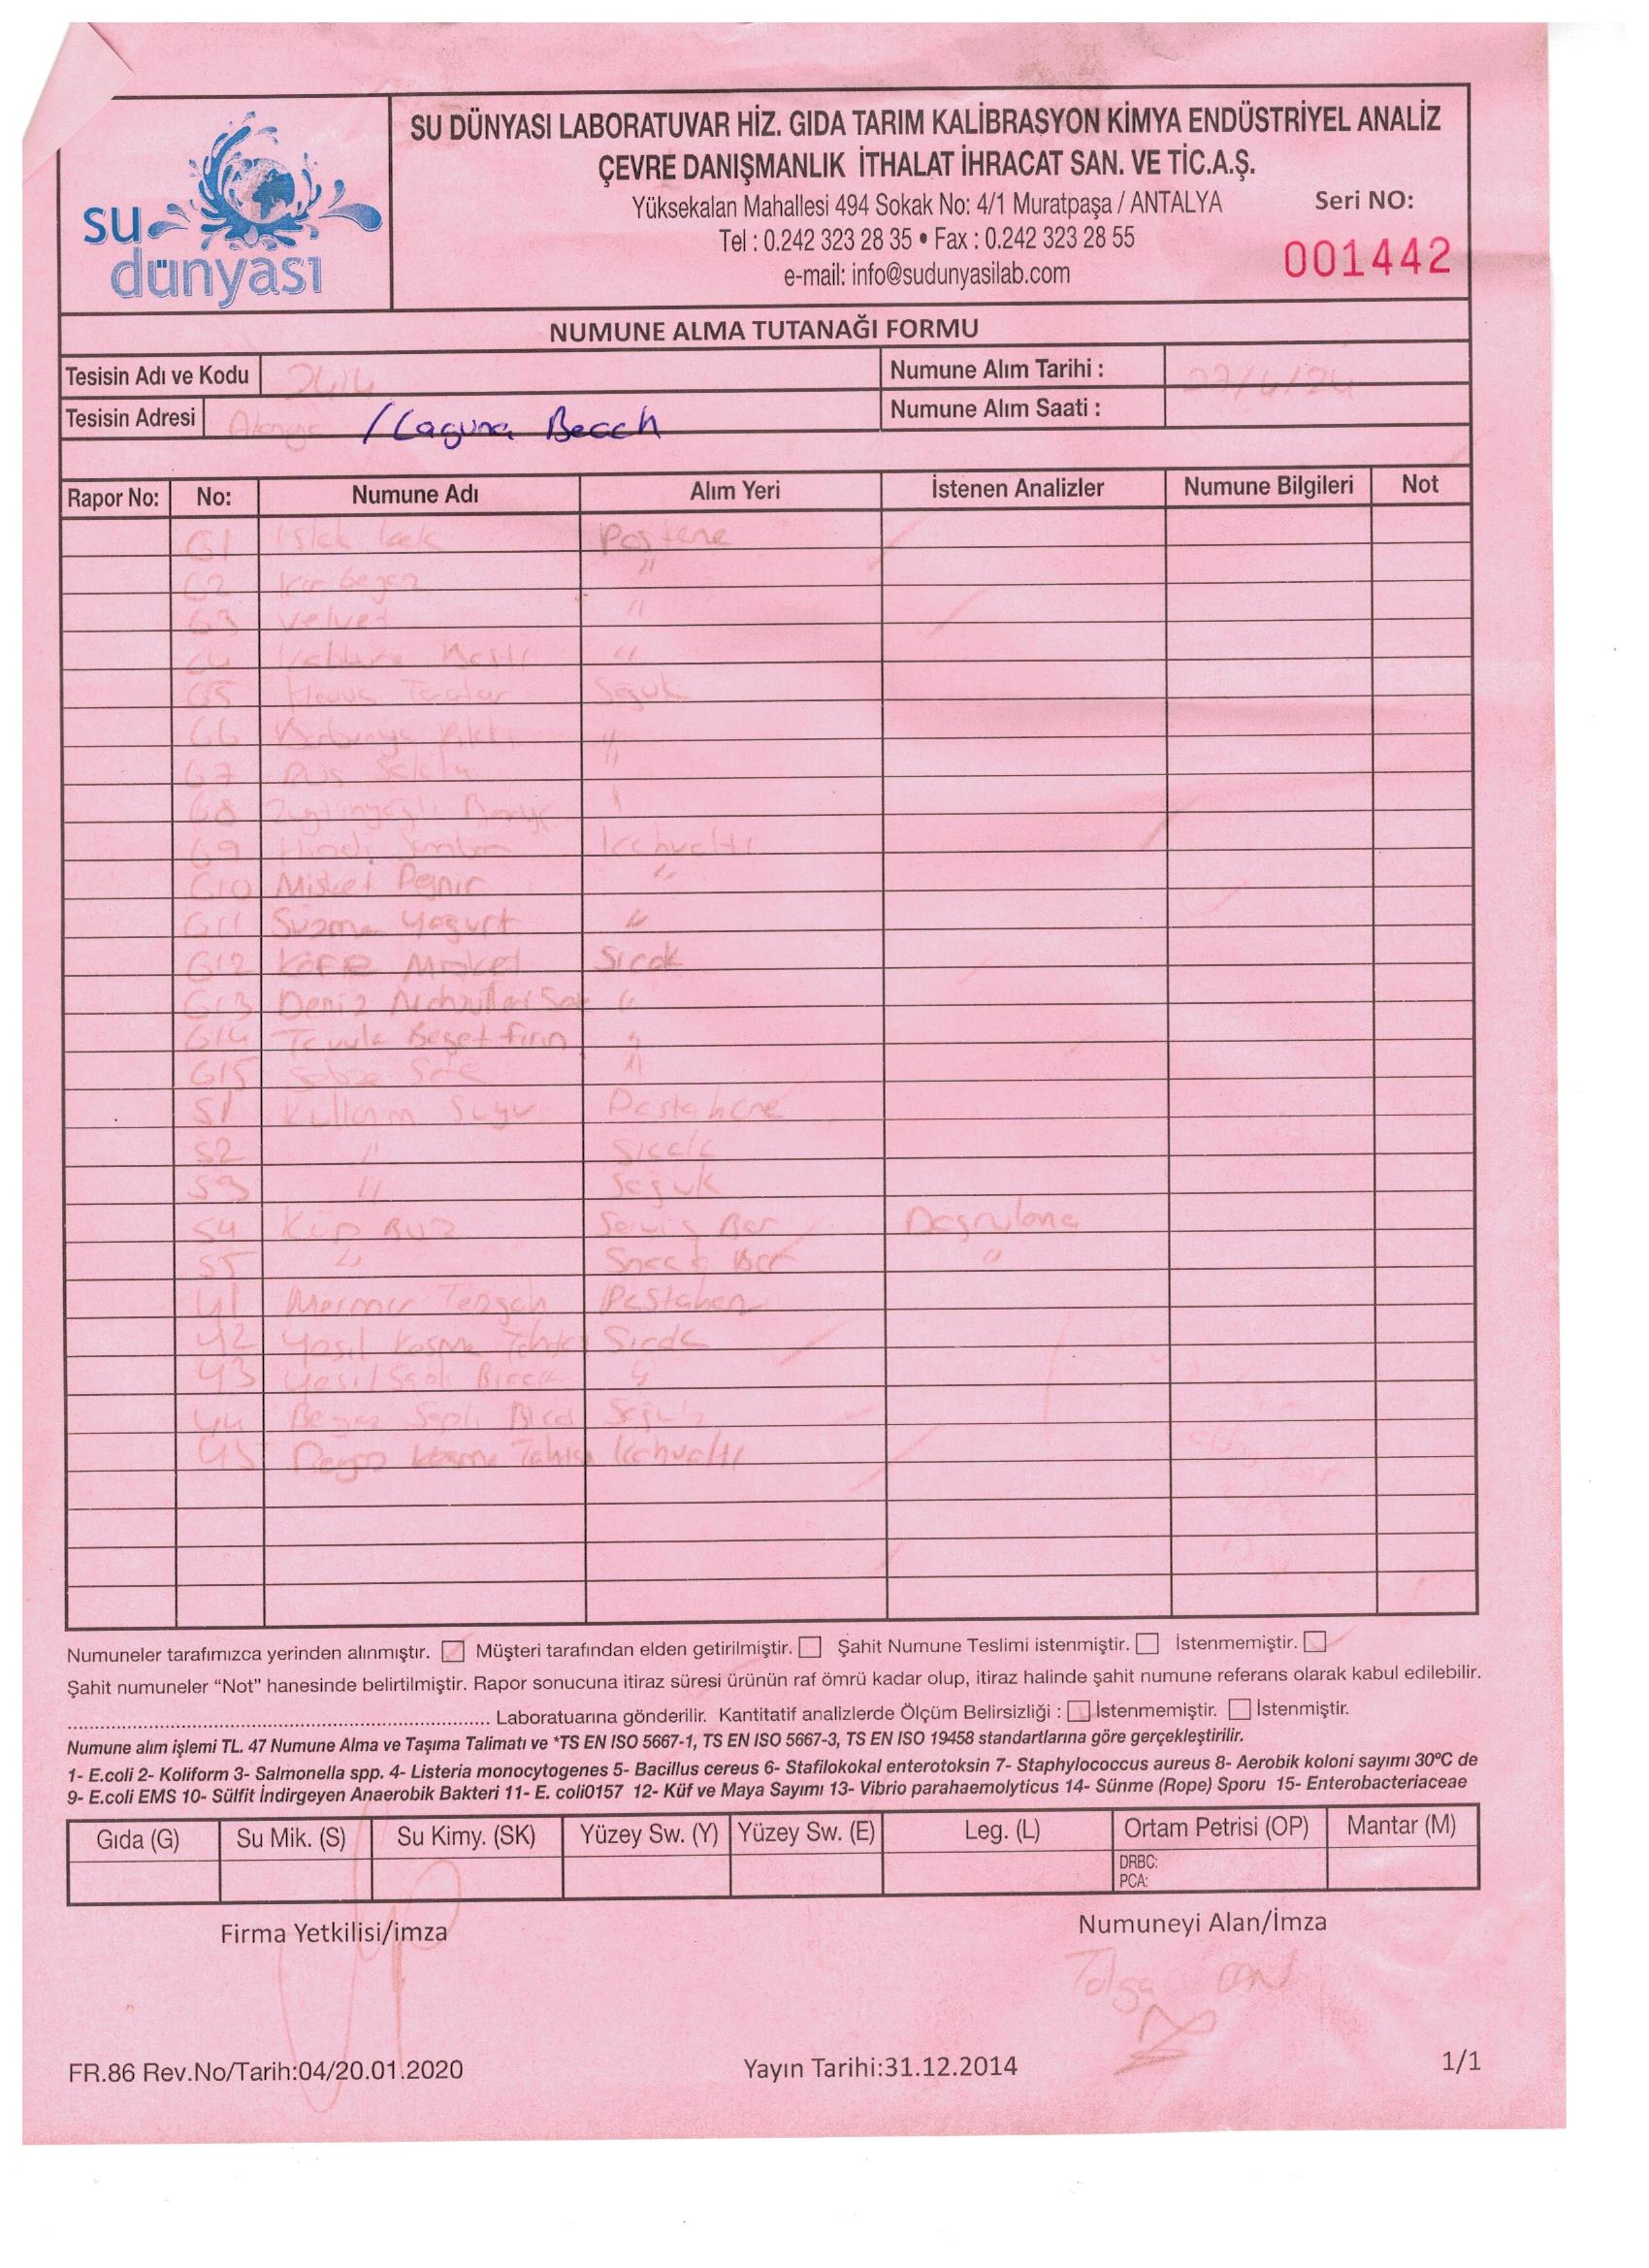 su dünyası
SU DÜNYASI LABORATUVAR HİZ. GIDA TARIM KALİBRASYON KİMYA ENDÜSTRİYEL ANALİZ
ÇEVRE DANIŞMANLIK İTHALAT İHRACAT SAN. VE TİC.A.Ş.
Yüksekalan Mahallesi 494 Sokak No: 4/1 Muratpaşa / ANTALYA
Tel : 0.242 323 28 35 • Fax : 0.242 323 28 55
e-mail: info@sudunyasilab.com
Seri NO:
001442
NUMUNE ALMA TUTANAĞI FORMU
Tesisin Adı ve Kodu 2414 Numune Alım Tarihi : 27/6/24
Tesisin Adresi Alanya / Laguna Beach Numune Alım Saati :
Rapor No: No: Numune Adı Alım Yeri İstenen Analizler Numune Bilgileri Not
G1 Islak kek Pastane
G2 "
G3 Velvet "
G4 "
G5 Soğuk
G6 "
G7 Rus "
G8
G9 Hindi Kahvaltı
G10 Misket Peynir "
G11 Süzme Yogurt "
G12 Köfte Misket Sıcak
G13 Deniz "
G14 fırın "
G15 "
S1 Kullanım Suyu Pastahane
S2 " Sıcak
S3 " Soğuk
S4 Küp Buz Servis Bar
S5 " Bar "
Y1 Mermer Tezgah Pastahan
Y2 Yeşil Kesme Sıcak
Y3 Yeşil Saplı Bıcak "
Y4 Beyaz Saplı Soğuk
Y5 Beyaz Kesme Kahvaltı
Numuneler tarafımızca yerinden alınmıştır. Müşteri tarafından elden getirilmiştir. Şahit Numune Teslimi istenmiştir. İstenmemiştir.
Şahit numuneler “Not” hanesinde belirtilmiştir. Rapor sonucuna itiraz süresi ürünün raf ömrü kadar olup, itiraz halinde şahit numune referans olarak kabul edilebilir.
........................ Laboratuarına gönderilir. Kantitatif analizlerde Ölçüm Belirsizliği : İstenmemiştir. İstenmiştir.
Numune alım işlemi TL. 47 Numune Alma ve Taşıma Talimatı ve *TS EN ISO 5667-1, TS EN ISO 5667-3, TS EN ISO 19458 standartlarına göre gerçekleştirilir.
1- E.coli 2- Koliform 3- Salmonella spp. 4- Listeria monocytogenes 5- Bacillus cereus 6- Stafilokokal enterotoksin 7- Staphylococcus aureus 8- Aerobik koloni sayımı 30ºC de
9- E.coli EMS 10- Sülfit İndirgeyen Anaerobik Bakteri 11- E. coli0157 12- Küf ve Maya Sayımı 13- Vibrio parahaemolyticus 14- Sünme (Rope) Sporu 15- Enterobacteriaceae
Gıda (G) Su Mik. (S) Su Kimy. (SK) Yüzey Sw. (Y) Yüzey Sw. (E) Leg. (L) Ortam Petrisi (OP) Mantar (M)
DRBC:
PCA:
Firma Yetkilisi/imza Numuneyi Alan/İmza
Tolga
FR.86 Rev.No/Tarih:04/20.01.2020 Yayın Tarihi:31.12.2014 1/1